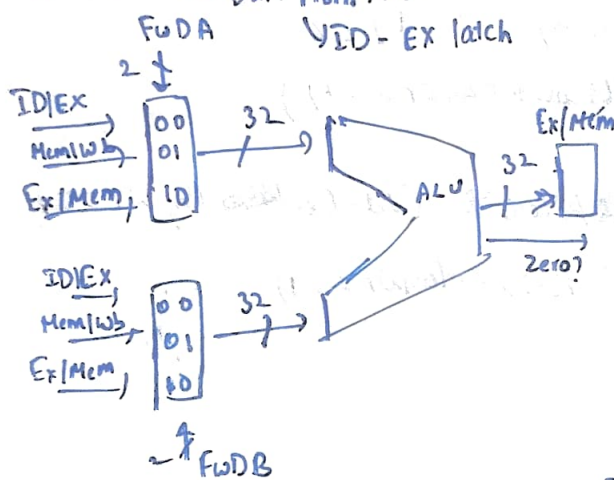 FwDA
ID-Ex latch
2
ID/Ex
Mem/Wb
Ex/Mem
00
01
10
32
ALU
32
Ex/Mem
Zero?
ID/Ex
Mem/Wb
Ex/Mem
00
01
10
32
2
FwDB